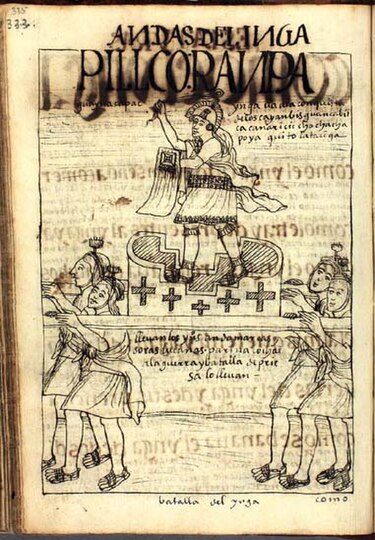 335
333
ANDAS DEL INGA
PILLCORANPA
guayna capac
ynga ua a la conquista
de los cayanbis guancabil
ca canari cicho chacha
poya quito latacunga
lleuan los yns andamarcas
soras lucanas parinacochas
a la guerra y batalla de prie
sa lo lleuan
batalla del ynga
como